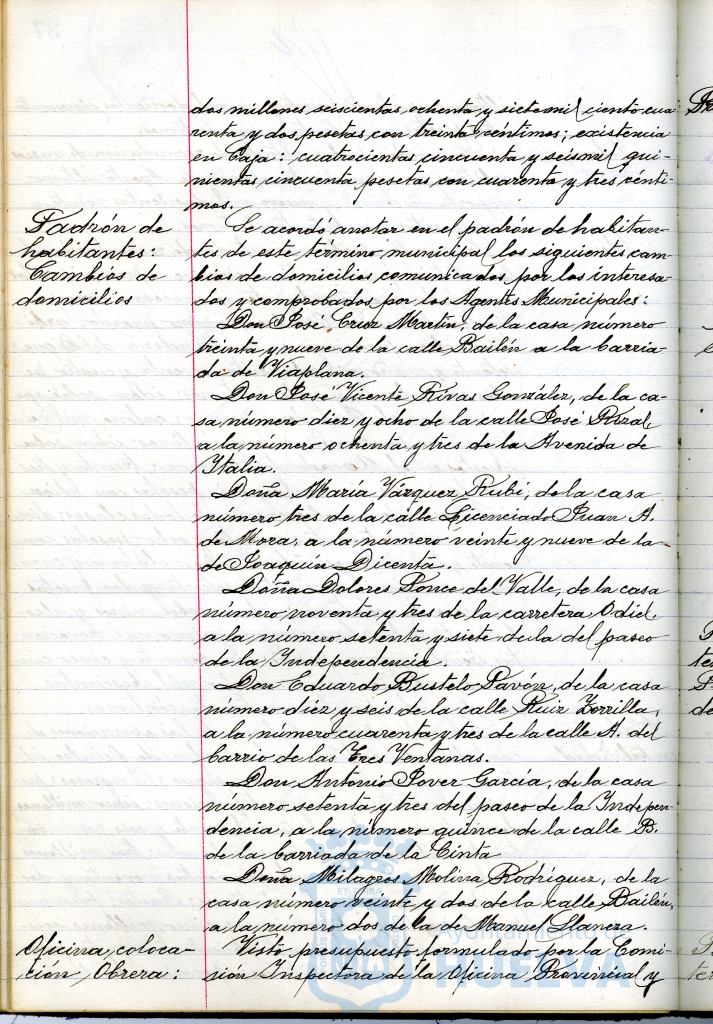 dos millones seiscientas ochenta y siete mil ciento cua-
renta y dos pesetas con treinta céntimos; existencia
en Caja: cuatrocientas cincuenta y seis mil qui-
nientas cincuenta pesetas con cuarenta y tres cénti-
mos.
Padrón de
habitantes:
Cambios de
domicilios
Se acordó anotar en el padrón de habitan-
tes de este término municipal los siguientes cam-
bios de domicilios comunicados por los interesa-
dos y comprobados por los Agentes Municipales:
Don José Cruz Martín, de la casa número
treinta y nueve de la calle Bailén a la barria-
da de Viaplana.
Don José Vicente Rivas González, de la ca-
sa número diez y ocho de la calle José Rizal,
a la número ochenta y tres de la Avenida de
Italia.
Doña María Vázquez Rubi, de la casa
número tres de la calle Licenciado Juan A.
de Mora, a la número veinte y nueve de la
de Joaquín Dicenta.
Doña Dolores Ponce del Valle, de la casa
número noventa y tres de la carretera Odiel,
a la número setenta y siete de la del paseo
de la Independencia.
Don Eduardo Bustelo Pavón, de la casa
número diez y seis de la calle Ruiz Zorrilla,
a la número cuarenta y tres de la calle A. del
barrio de las Tres Ventanas.
Don Antonio Jover García, de la casa
número setenta y tres del paseo de la Indepen-
dencia, a la número quince de la calle B.
de la barriada de la Cinta
Doña Milagros Molina Rodríguez, de la
casa número veinte y dos de la calle Bailén,
a la número dos de la de Manuel Llaneza.
Oficina coloca-
ción Obrera:
Visto presupuesto formulado por la Comi-
sión Inspectora de la Oficina Provincial y